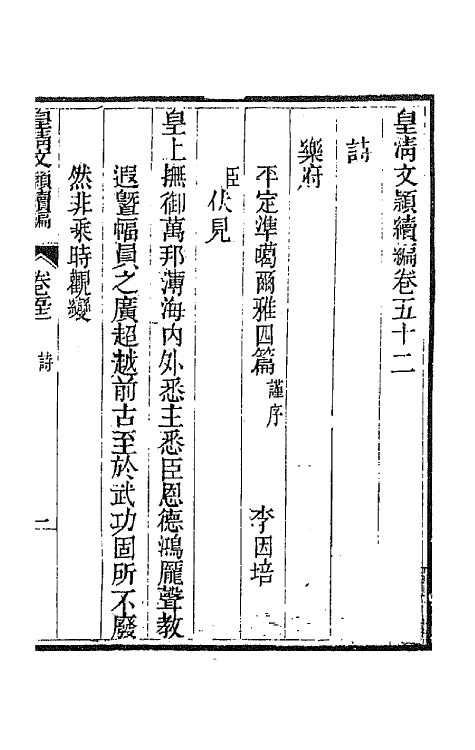 皇清文穎續編卷五十二
詩
樂府
平定準噶爾雅四篇 謹序 李因培
臣伏見
皇上撫御萬邦薄海內外悉主悉臣恩德鴻龎聲教
遐曁幅員之廣超越前古至於武功固所不廢
然非乘時觀變
皇清文穎續編 卷五十二 詩 一